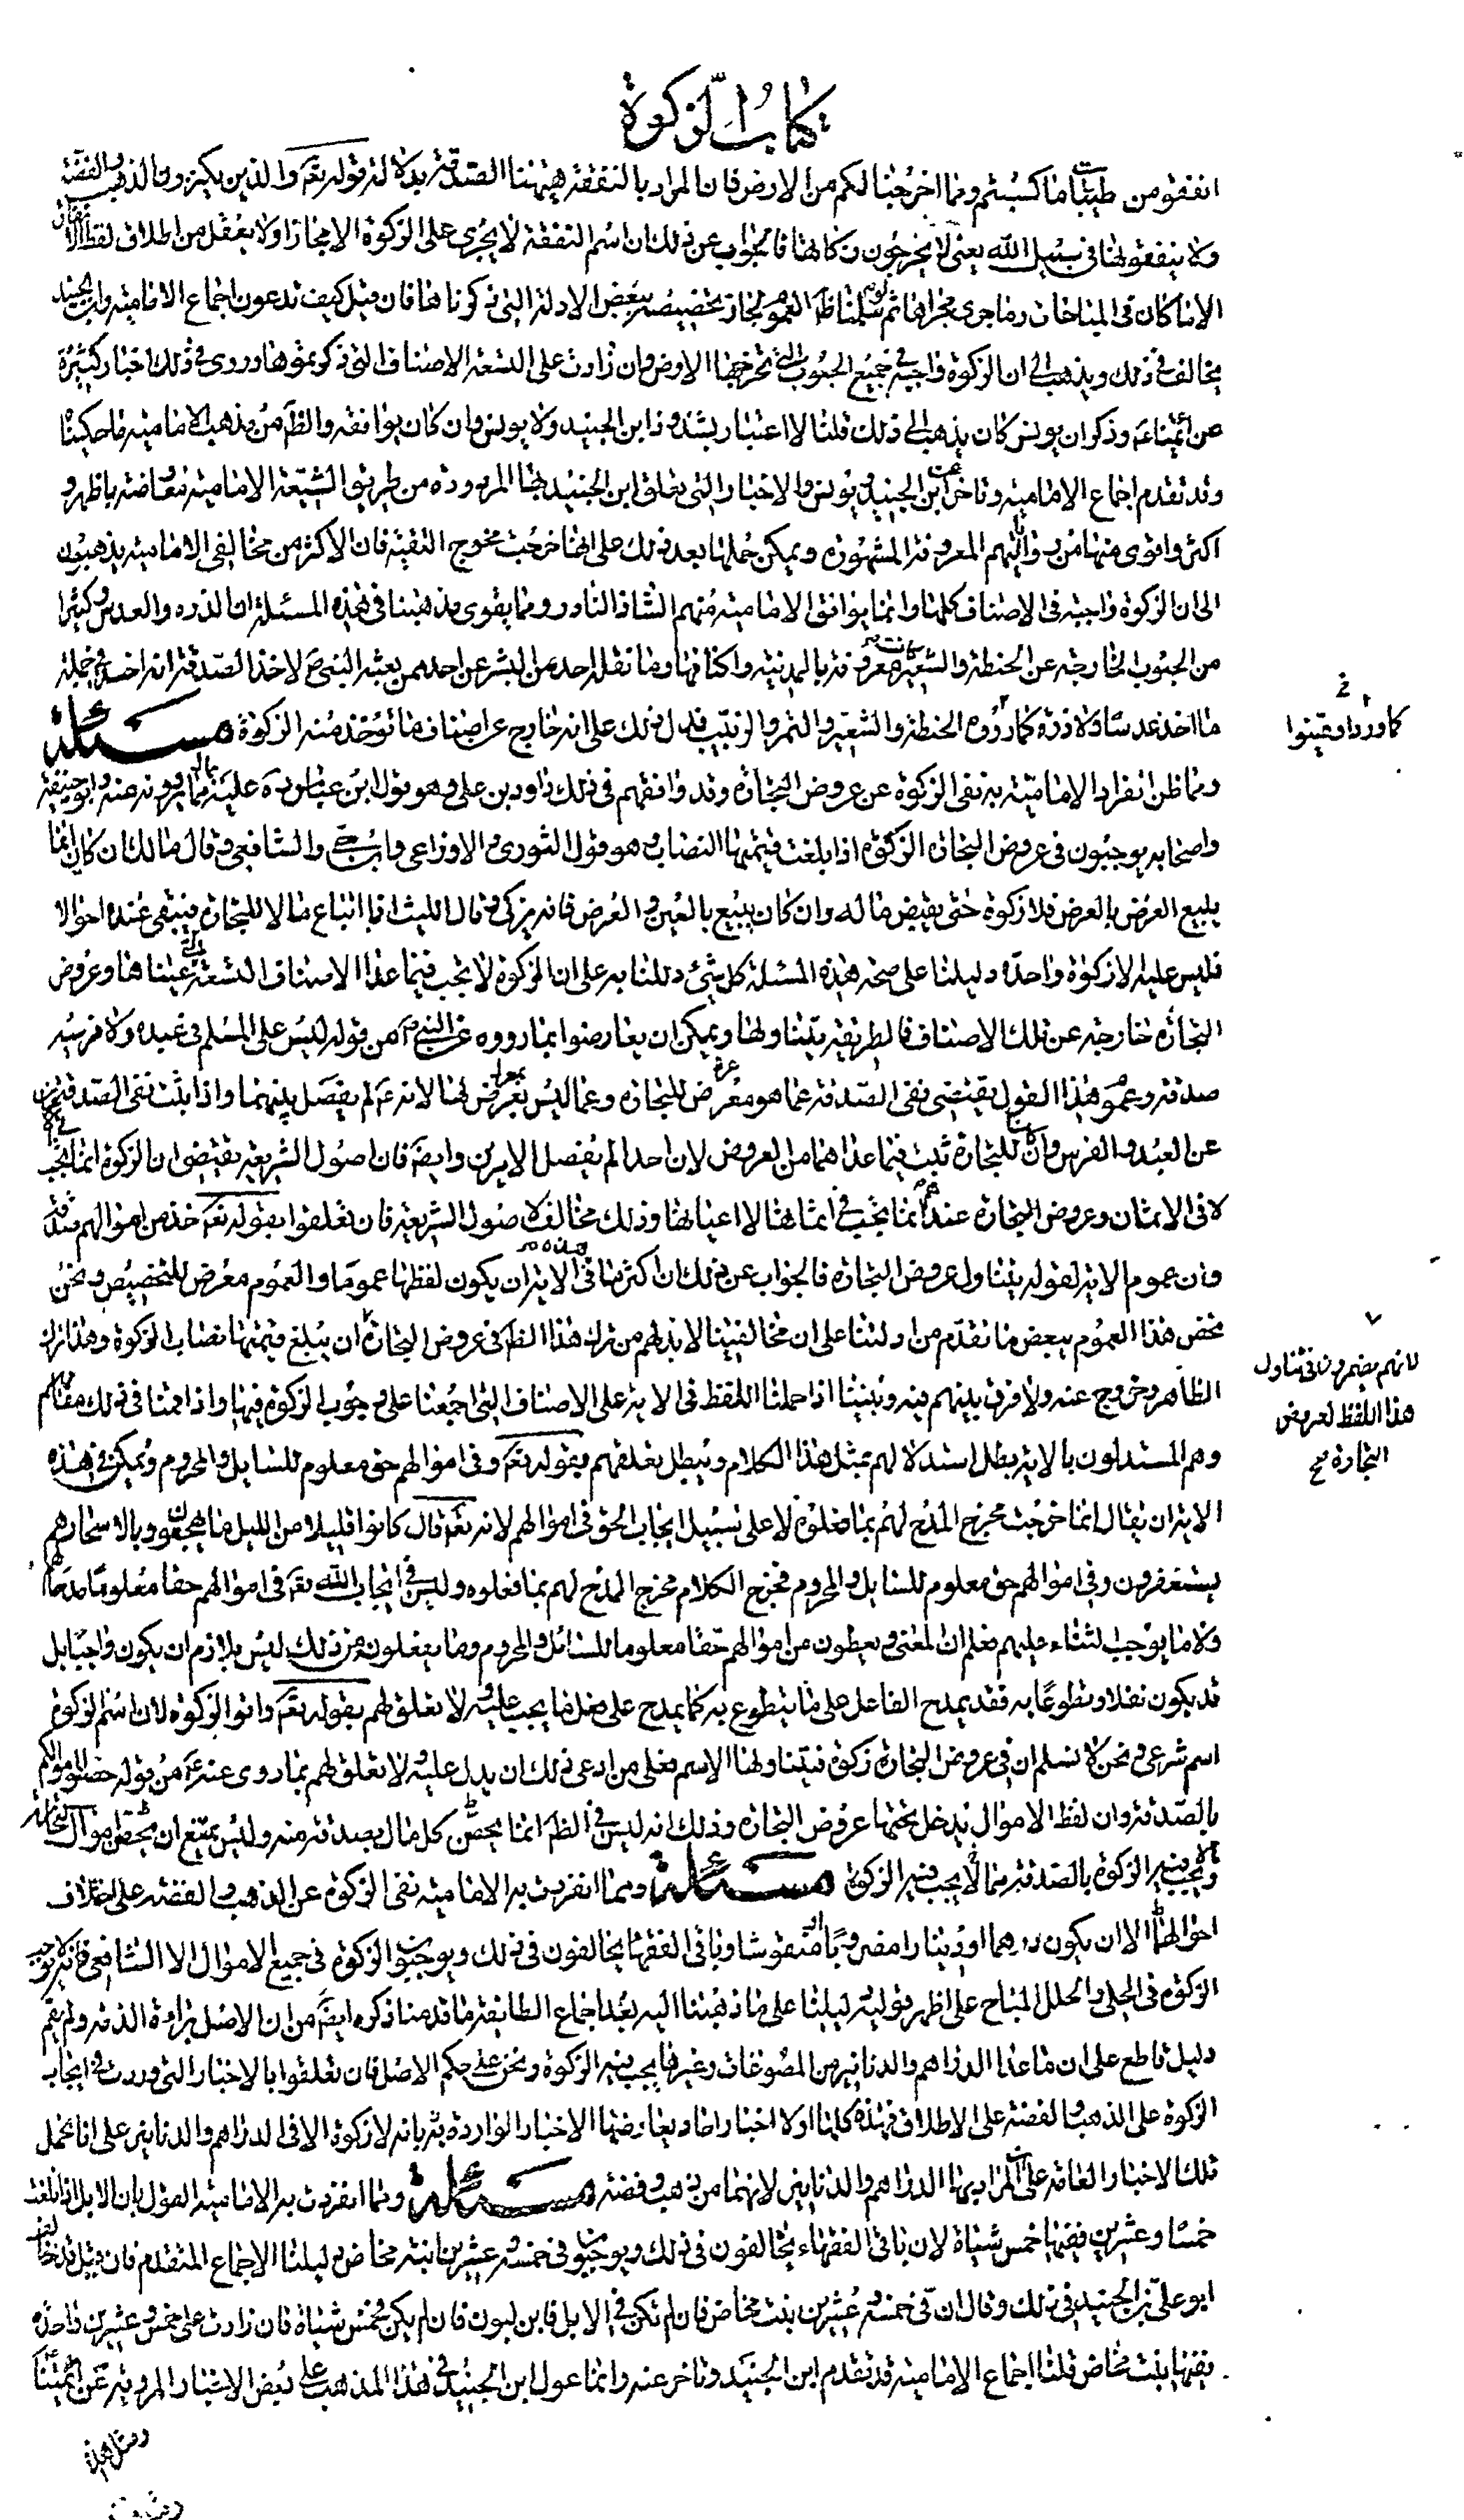 كتاب الزكوة
انفقوا من طيبات ما كسبتم ومما اخرجنا لكم من الارض فان المراد بالنفقة ههنا الصدقة بدلالة قوله تعه والذين يكنزون الذهب والفضة
ولا ينفقونها في سبيل الله يعني لا يخرجون زكاتها فالجواب عن ذلك ان اسم النفقة لا يجري على الزكوة الا مجازا ولا يعقل من اطلاق لفظ الانفاق
الا ما كان في المباحات وما جرى مجراها ثم لو سلمنا ظاهر العموم لجاز تخصيصه ببعض الادلة التي ذكرناها فان قيل كيف تدعون اجماع الامامية وابن الجنيد
مخالف في ذلك ويذهب الى ان الزكوة واجبة في جميع الحبوب التي تخرجها الارض وان زادت على التسعة الاصناف التي ذكرتموها وروى في ذلك اخبار كثيرة
عن ائمتنا ع وذكر ان يونس كان يذهب الى ذلك قلنا لا اعتبار بشذوذ ابن الجنيد ولا يونس وان كان يوافقه والظ من مذهب الامامية ما حكيناه
وقد تقدم اجماع الامامية وتاخر عن ابن الجنيد ويونس والاخبار التي تعلق ابن الجنيد بها المروية من طريق الشيعة الامامية معارضة باظهر و
اكثر واقوى منها من رواياتهم المعروفة المشهورة ويمكن حملها بعد ذلك على انها خرجت مخرج التقية فان الاكثر من مخالفي الامامية يذهبون
الى ان الزكوة واجبة في الاصناف كلها وانما يوافق الامامية منهم الشاذ النادر ومما يقوى مذهبنا في هذه المسئلة ان الذره والعدس وكثيرا
من الحبوب الخارجة عن الحنطة والشعير كانت معروفة بالمدينة واكنافها وما نقل احد من البشر عن احد ممن بعثه النبي ص لاخذ الصدقة انه اخذ في جملة
ما اخذ عدسا ولا ذرة كما رووه الحنطة والشعير والتمر والزبيب فدل ذلك على انه خارج عن اصناف ما تؤخذ منه الزكوة مسئلة
كما ورد او عينوا خ
ومما ظن انفراد الامامية به نفى الزكوة عن عروض التجارة وقد وافقهم في ذلك داود بن علي وهو قول ابن عباس ره عليه فيما يروونه عنه وابو حنيفة
واصحابه يوجبون في عروض التجارة الزكوة اذا بلغت قيمتها النصاب وهو قول الثوري والاوزاعي وابن حي والشافعي وقال مالك ان كان انما
يبيع العرض بالعرض فلا زكوة حتى يقبض ماله وان كان يبيع بالعين والعرض فانه يزكى وقال الليث اذا ابتاع مالا للتجارة فبقي عنده احوالا
فليس عليه الا زكوة واحدة دليلنا على صحة هذه المسئلة كل شئ دللنا به على ان الزكوة لا تجب فيما عدا الاصناف التسعة التي عيناها وعروض
التجارة خارجة عن تلك الاصناف فالطريقة يتناولها ويمكن ان يعارضوا بما رووه عن النبي ص من قوله ليس على المسلم في عبده ولا فرسه
صدقة وعموم هذا القول يقتضي نفى الصدقة عما هو معرض للتجارة وعما ليس بمعرض لها لانه ع لم يفصل بينهما واذا ثبت نفى الصدقة
عن العبد والفرس وان كانا للتجارة ثبت فيما عداهما من العروض لان احدا لم يفصل الامرين وايضا فان اصول الشريعة تقتضي ان الزكوة انما تجب في الاعيان
لا في الاثمان وعروض التجارة عندهم انما تجب في اثمانها لا اعيانها وذلك مخالف لاصول الشريعة فان تعلقوا بقوله تعه خذ من اموالهم صدقة
وان عموم الاية لقوله يتناول عروض التجارة فالجواب عن ذلك ان اكثر ما في هذه الاية ان يكون لفظها عموما والعموم معرض للتخصيص ونحن
نخص هذا العموم ببعض ما تقدم من ادلتنا على ان مخالفينا لا بد لهم من ترك هذا الظ في عروض التجارة ان يبلغ قيمتها نصاب الزكوة وهذا ترك
لانهم يضمرون في تناول
هذا اللفظ لعروض
التجارة صح
الظاهر وخروج عنه ولا فرق بينهم فيه وبيننا اذا حملنا اللفظ في الاية على الاصناف التي اجمعنا على وجوب الزكوة فيها واذا قمنا في ذلك مقامهم
وهم المستدلون بالاية بطل استدلالهم بمثل هذا الكلام ويبطل تعلقهم بقوله تعه وفي اموالهم حق معلوم للسايل والمحروم ويمكن في هذه
الاية ان يقال انما خرجت مخرج المدح لهم بما فعلوه لا على سبيل ايجاب الحق في اموالهم لانه تعه قال كانوا قليلا من الليل ما يهجعون وبالاسحار هم
يستغفرون وفي اموالهم حق معلوم للسايل والمحروم فخرج الكلام مخرج المدح لهم بما فعلوه وليس في ايجاب الله تعه في اموالهم حقا معلوما مدحا لهم
ولا ما يوجب الثناء عليهم فعلم ان المعنى ويعطون من اموالهم حقا معلوما للسائل والمحروم وما يفعلون من ذلك ليس بلازم ان يكون واجبا بل
قد يكون نفلا وتطوعا به فقد يمدح الفاعل على ما يتطوع به كما يمدح على فعل ما يجب عليه ولا تعلق لهم بقوله تعه واتوا الزكوة لان اسم الزكوة
اسم شرعي ونحن لا نسلم ان في عروض التجارة زكوة فيتناولها الاسم فعلى من ادعى ذلك ان يدل عليه ولا تعلق لهم بما روى عنه ع من قوله حصنوا اموالكم
بالصدقة وان لفظ الاموال يدخل تحتها عروض التجارة وذلك انه ليس في الظ انما يحصن كل مال بصدقة منه وليس يمتنع ان يحصن اموال التجارة
وما لا يجب فيه الزكوة بالصدقة مما لا يجب فيه الزكوة مسئلة ومما انفردت به الامامية نفى الزكوة عن الذهب والفضة على اختلاف
احوالهما الا ان يكون درهما او دينارا مضروبا منقوشا وباقي الفقهاء يخالفون في ذلك ويوجبون الزكوة في جميع الاموال الا الشافعي فانه لا يوجب
الزكوة في الحلي والحلل المباح على اظهر قوليه دليلنا على ما ذهبنا اليه بعد اجماع الطايفة ما قدمنا ذكره ايضا من ان الاصل براءة الذمة ولم يقم
دليل قاطع على ان ما عدا الدراهم والدنانير من المصوغات وغيرها يجب فيه الزكوة ونحن على حكم الاصل فان تعلقوا بالاخبار التي وردت في ايجاب
الزكوة على الذهب والفضة على الاطلاق فهذه كلها اولا اخبار احاد ويعارضها الاخبار الواردة بانه لا زكوة الا في الدراهم والدنانير على انا نحمل
تلك الاخبار العامة على ان المراد بها الدراهم والدنانير لانهما من ذهب وفضة مسئلة ومما انفردت به الامامية القول بان الابل اذا بلغت
خمسا وعشرين ففيها خمس شياة لان باقي الفقهاء يخالفون في ذلك ويوجبون في خمسة وعشرين ابنة مخاض دليلنا الاجماع المتقدم فان قيل قد خالف
ابو علي بن الجنيد في ذلك وقال ان في خمسة وعشرين بنت مخاض فان لم تكن في الابل فابن لبون فان لم يكن فخمس شياة فان زادت على خمس وعشرين واحدة
ففيها بنت مخاض قلنا اجماع الامامية قد تقدم ابن الجنيد وتاخر عنه وانما عول ابن الجنيد في هذا المذهب على بعض الاخبار المروية عن ائمتنا
ومثل هذه